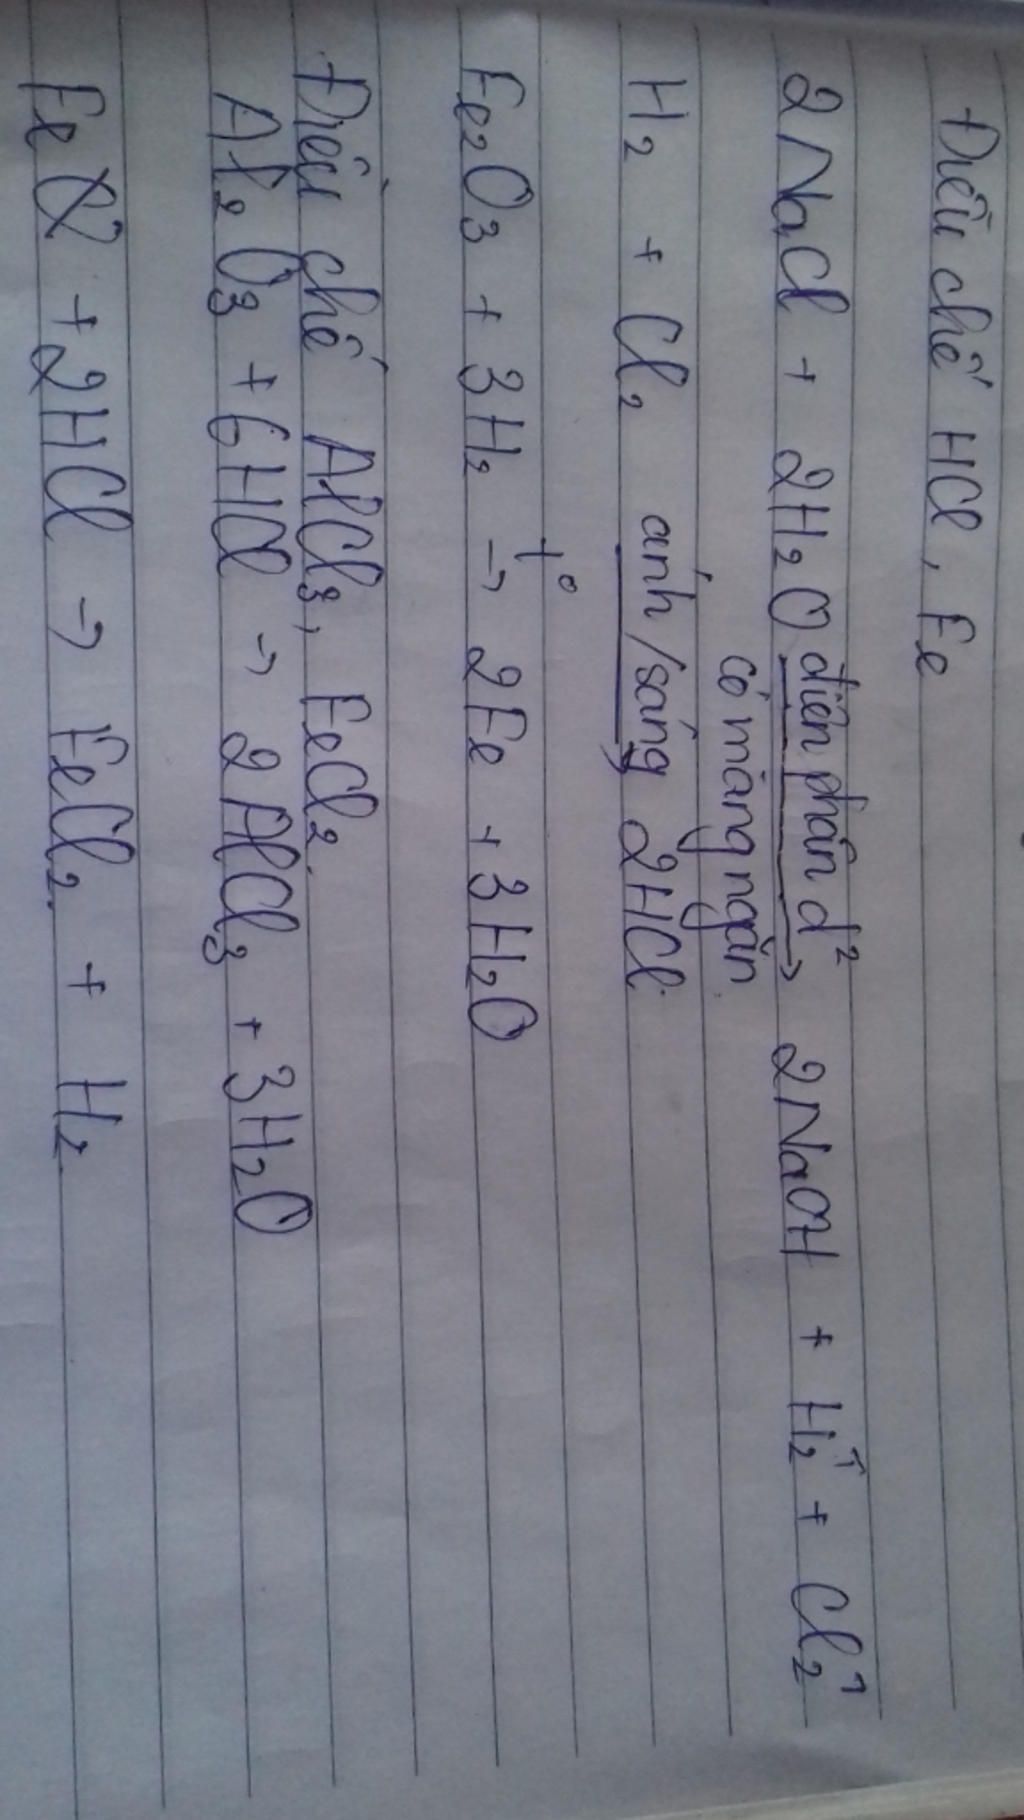 Điều chế HCl, Fe
2NaCl + 2H₂O điện phân d² → 2NaOH + H₂↑ + Cl₂↑
có màng ngăn
H₂ + Cl₂ ánh/sáng → 2HCl
Fe₂O₃ + 3H₂ t° → 2Fe + 3H₂O
Điều chế AlCl₃, FeCl₂
Al₂O₃ + 6HCl → 2AlCl₃ + 3H₂O
Fe + 2HCl → FeCl₂ + H₂